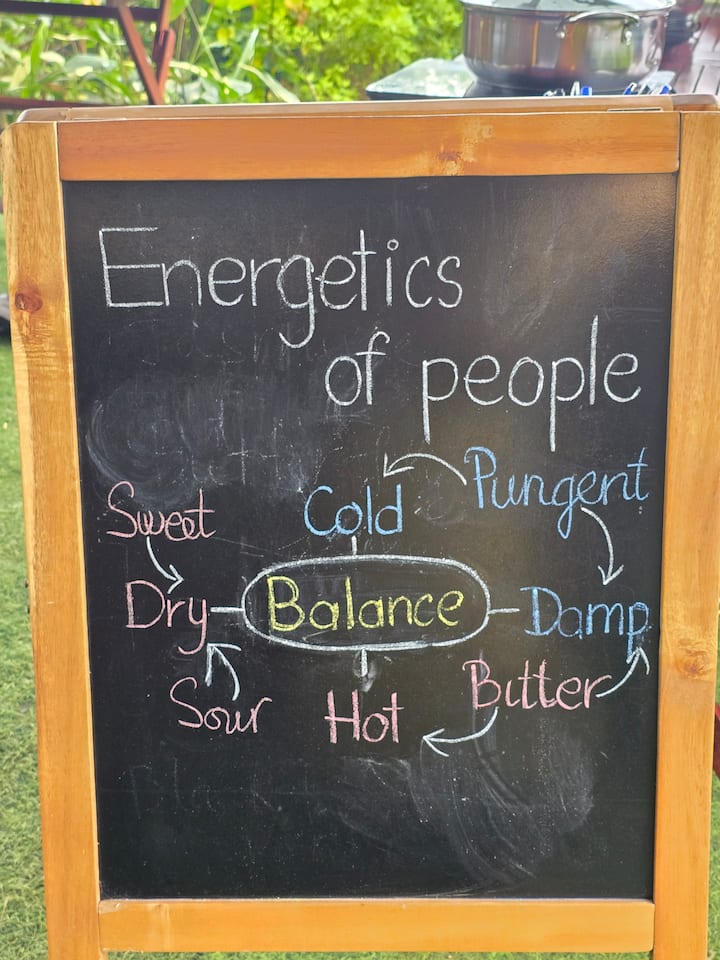 Energetics
of people
Pungent
Sweet Cold
Dry Balance Damp
Sour Hot Bitter